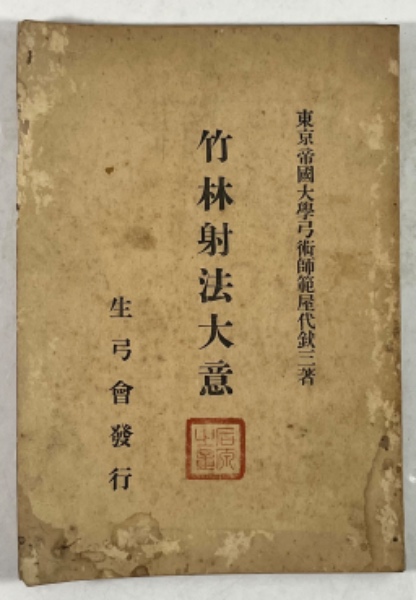 東京帝國大學弓術師範屋代釴三著
竹林射法大意
生弓會發行